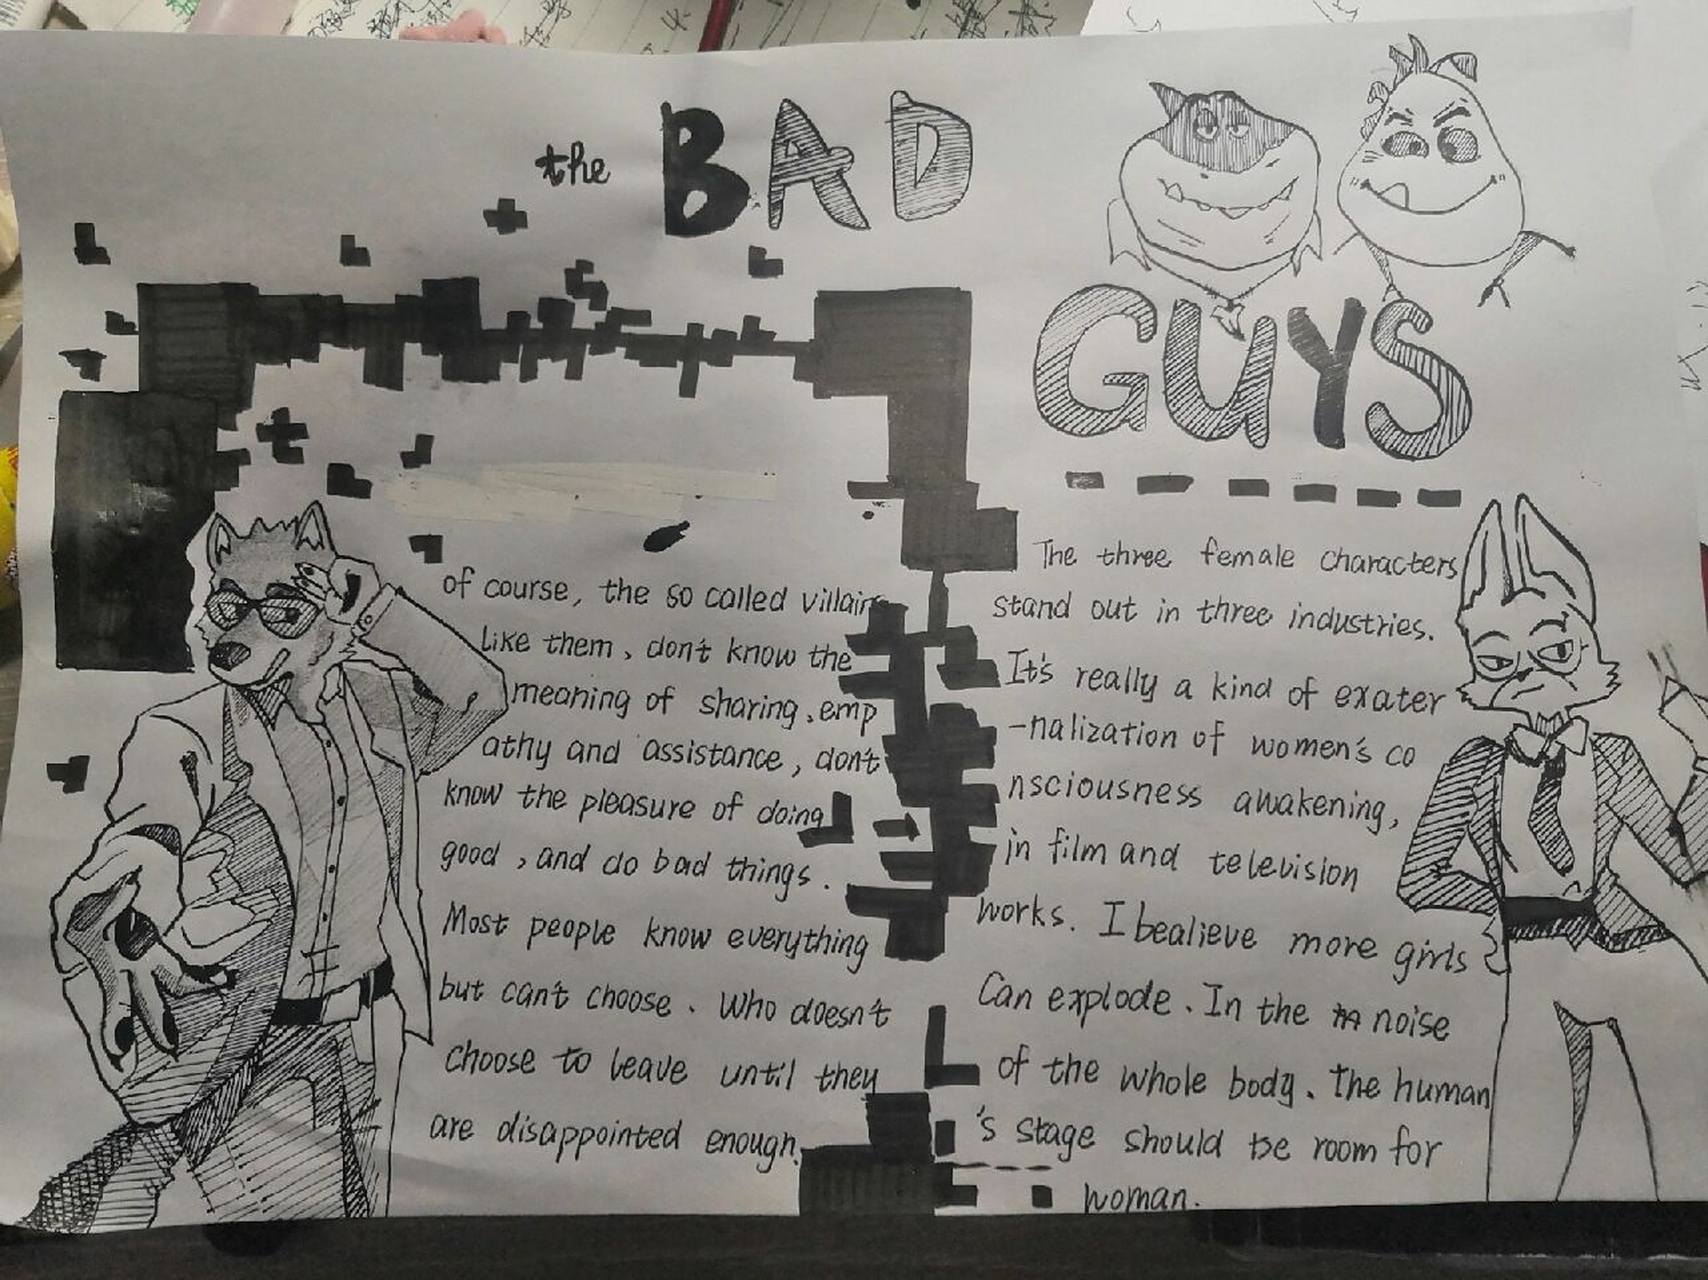 the BAD
GUYS
of course, the so called villains
like them, don't know the
meaning of sharing, emp
athy and assistance, don't
know the pleasure of doing
good, and do bad things.
Most people know everything
but can't choose. Who doesn't
choose to leave until they
are disappointed enough.
The three female characters
stand out in three industries.
It's really a kind of exater
-nalization of women's co
nsciousness awakening,
in film and television
works. I bealieve more girls
Can explode. In the noise
of the whole body. The human
's stage should be room for
woman.